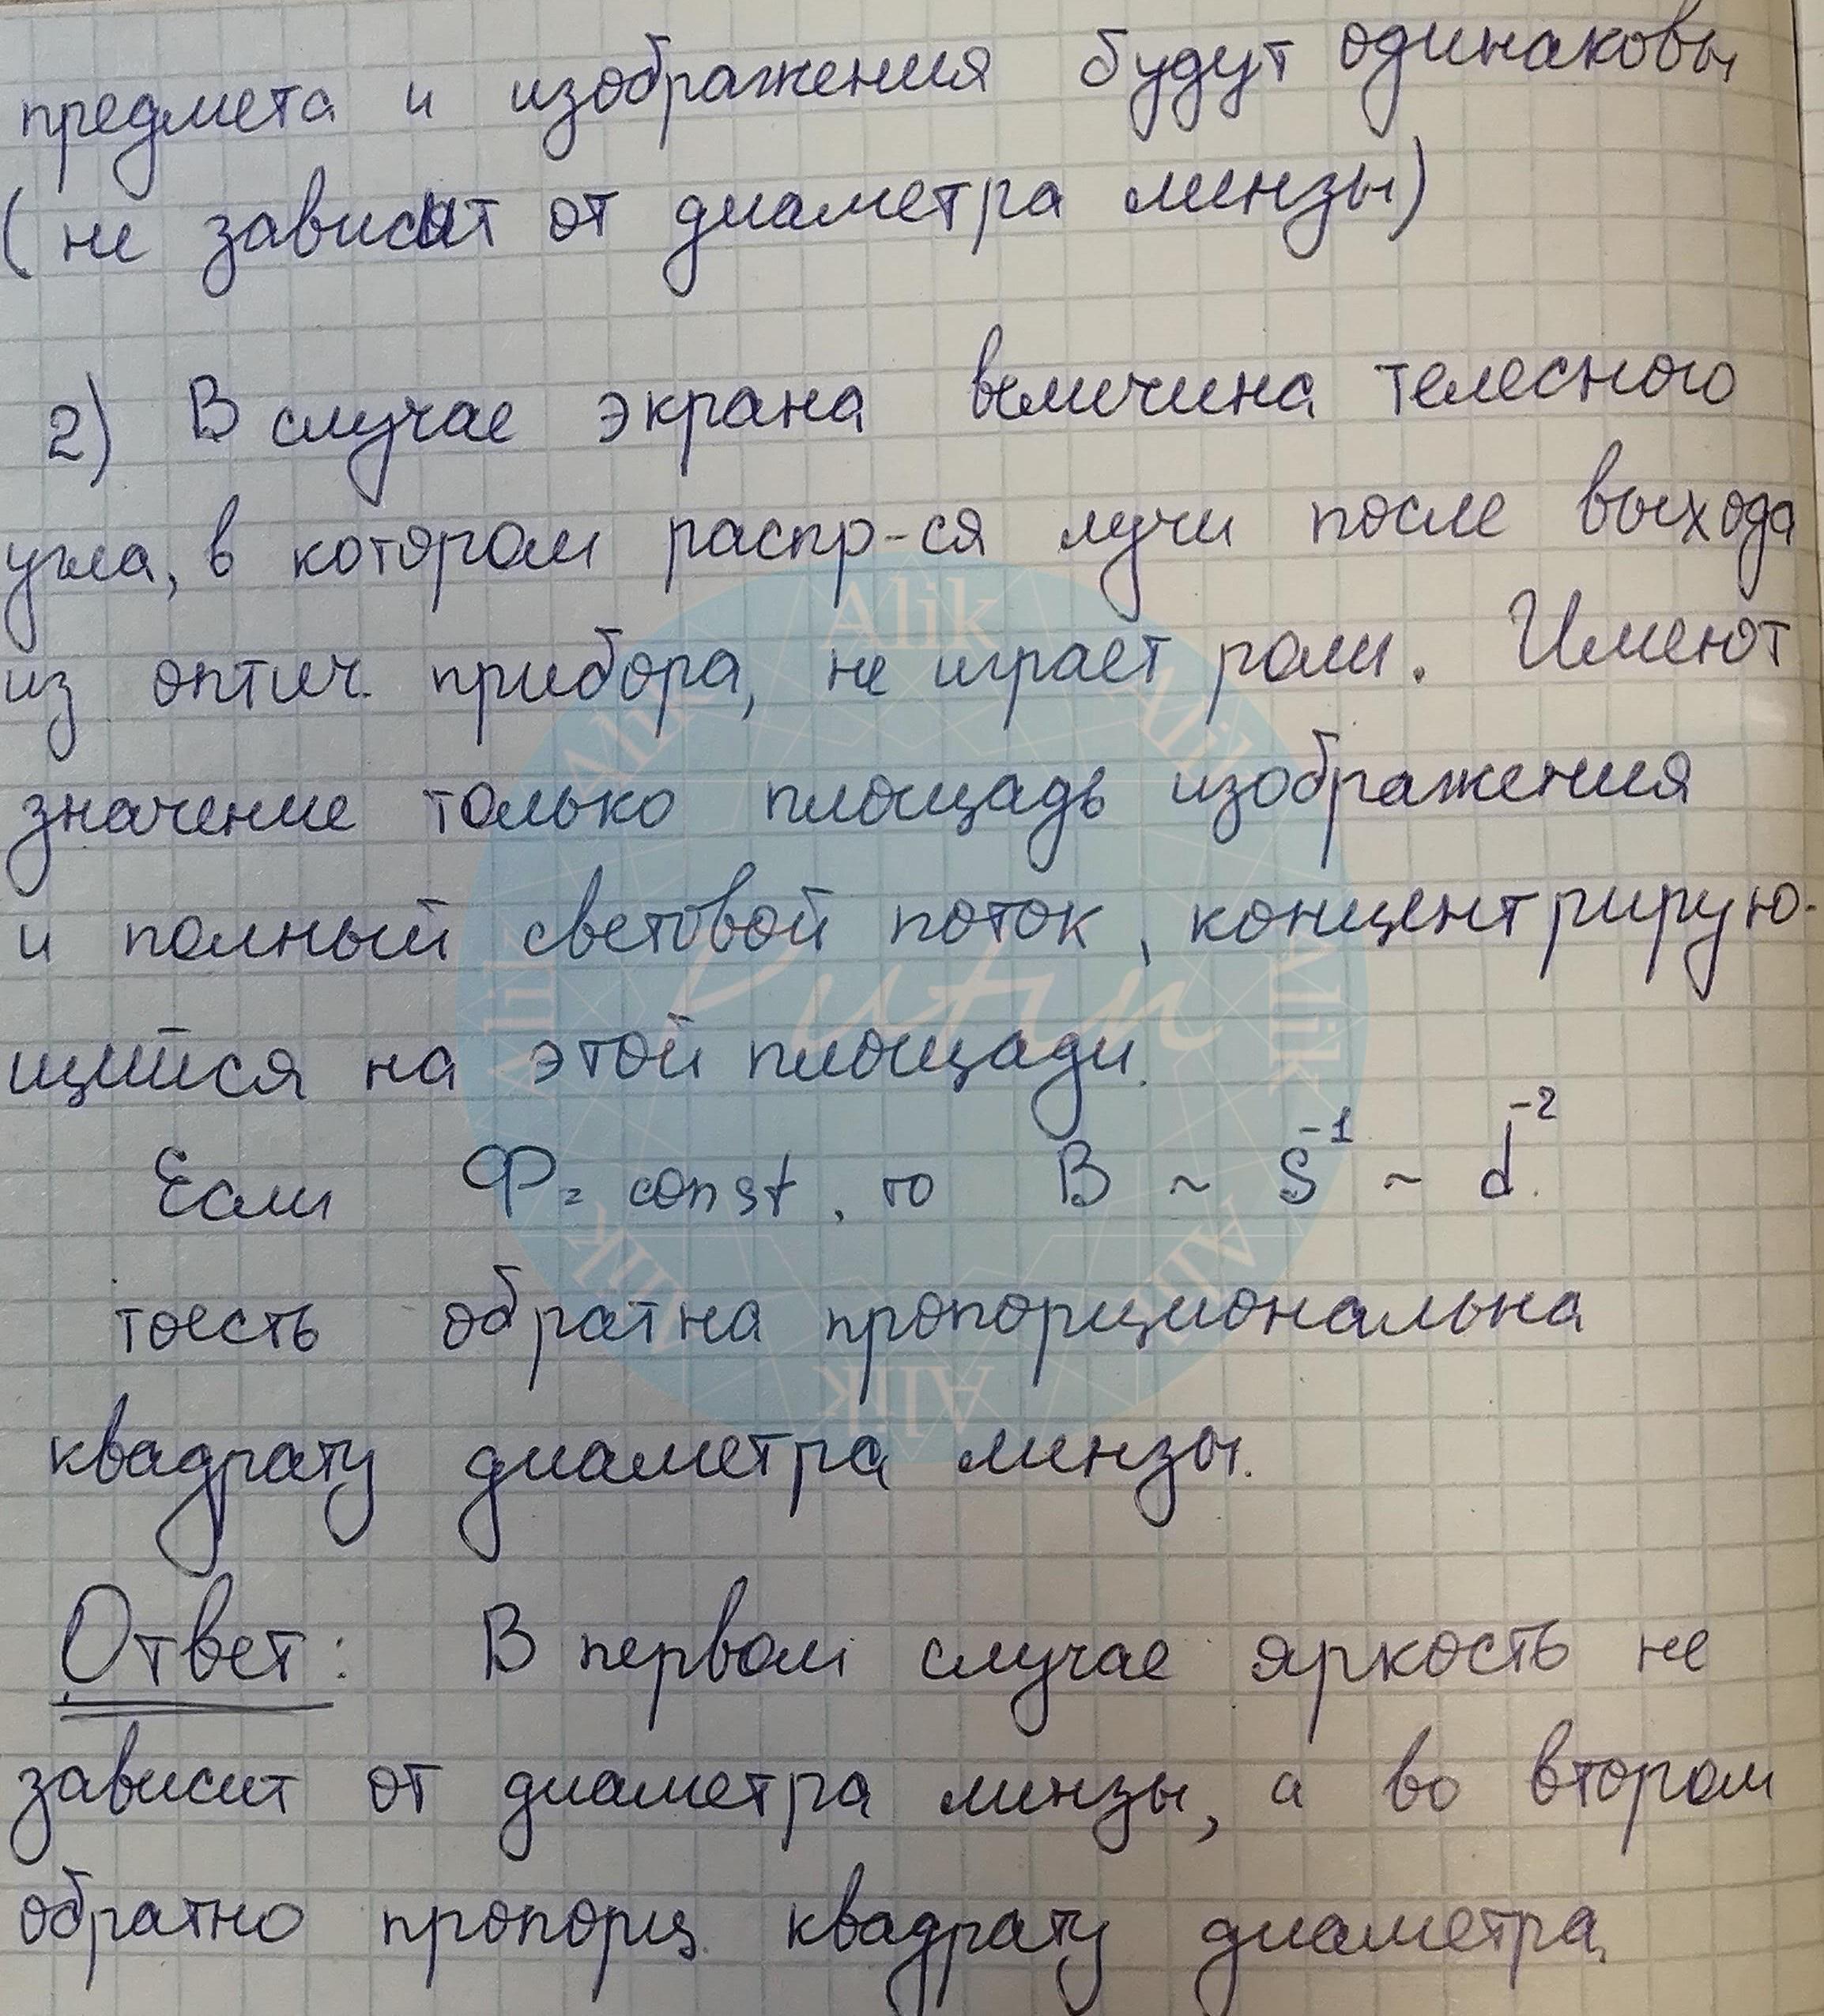 предмета и изображения будут одинаковы
(не зависят от диаметра линзы)
2) В случае экрана величина телесного
угла, в котором распр-ся лучи после выхода
из оптич. прибора, не играет роли. Имеют
значение только площадь изображения
и полный световой поток, концентрирую-
щийся на этой площади.
Если Ф = const, то B ~ S⁻¹ ~ d⁻².
тоесть обратна пропорциональна
квадрату диаметра линзы.
Ответ: В первом случае яркость не
зависит от диаметра линзы, а во втором
обратно пропорц. квадрату диаметра
Alik
Alik
Alik
Alik
Alik
Alik
Alik
Alik
Putin